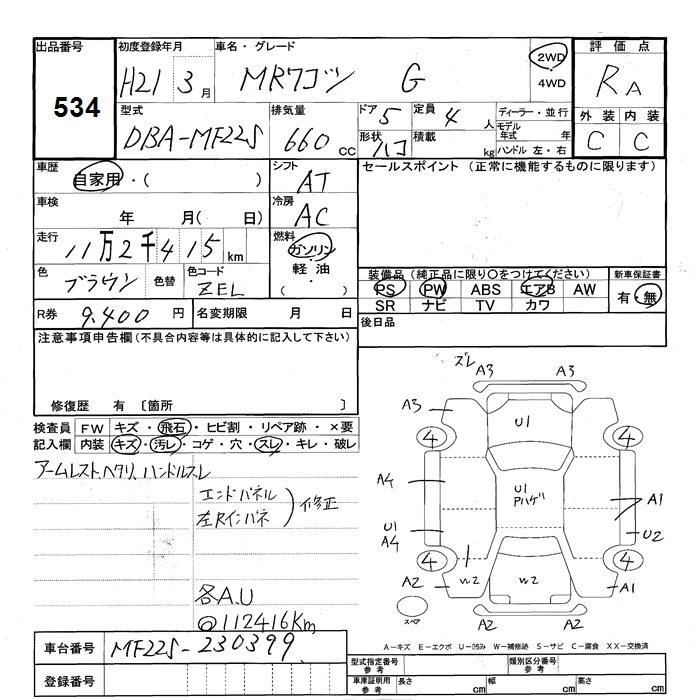 出品番号 初度登録年月 車名・グレード 評価点
534 H21 3月 MRワゴン G 2WD ・ 4WD RA
型式 排気量 ドア 5 定員 4人 ディーラー・並行 外装 内装
DBA-MF22S 660cc 形状 ハコ 積載 kg モデル年式 年 C C
ハンドル 左・右
車歴 シフト セールスポイント (正常に機能するものに限ります)
自家用・( ) AT
車検 冷房
年 月( 日) AC
走行 11万2千415km 燃料
ガソリン・
色 ブラウン 色替 色コード ZEL 軽油・ ( ) 装備品(純正品に限り○をつけてください) 新車保証書
PS PW ABS エアB AW 有・無
SR ナビ TV カワ
R券 9,400円 名変期限 月 日 後日品
注意事項申告欄(不具合内容等は具体的に記入して下さい)
修復歴 有 〔箇所 〕
検査員 FW キズ・飛石・ヒビ割・リペア跡・×要
記入欄 内装 キズ・汚レ・コゲ・穴・スレ・キレ・破レ
アームレスト、ヘタリ、ハンドルスレ
エンドパネル
左Rインパネ
修正
各A.U
@112416Km
ズレ
A3 A3
A3 U1
4 4
A4 U1 Pハゲ A1
U1 U2
A4
4 4
A2 W2 W2 A1
スペア A2 A2
車台番号 MF22S-230399
登録番号
A-キズ E-エクボ U-凹み W-補修跡 S-サビ C-腐食 XX-交換済
型式指定番号 参考 類別区分番号 参考
車庫証明用 参考 長さ cm 幅 cm 高さ cm